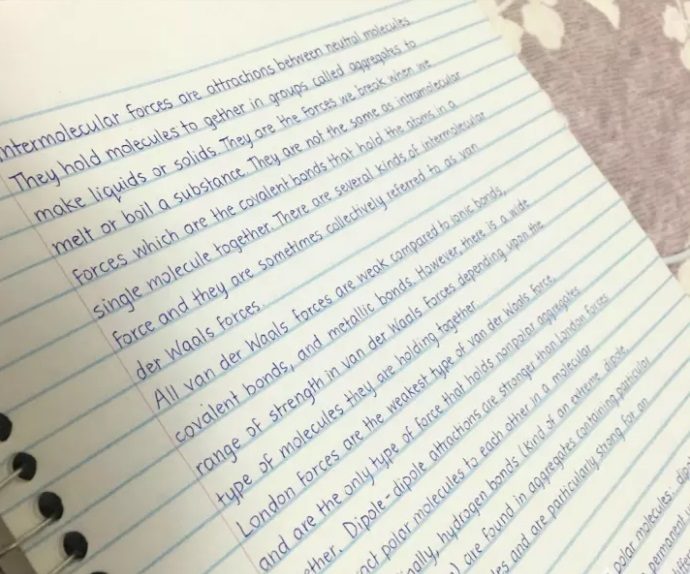 Intermolecular forces are attractions between neutral molecules
They hold molecules to gether in groups called aggregates to
make liquids or solids They are the forces we break when we
melt or boil a substance. They are not the same as intramolecular
forces which are the covalent bonds that hold the atoms in a
single molecule together. There are several kinds of intermolecular
force and they are sometimes collectively referred to as van
der Waals forces.
All van der Waals forces are weak compared to ionic bonds,
covalent bonds, and metallic bonds. However there is a wide
range of strength in van der Waals forces depending upon the
type of molecules they are holding together
London forces are the weakest type of van der Waals force
and are the only type of force that holds nonpolar aggregates
ether. Dipole-dipole attractions are stronger than London forces
nct polar molecules to each other in a molecular
nally, hydrogen bonds (kind of an extreme dipole
) are found in aggregates containing particular
les and are particularly strong for an
polar molecules: dip
permanent